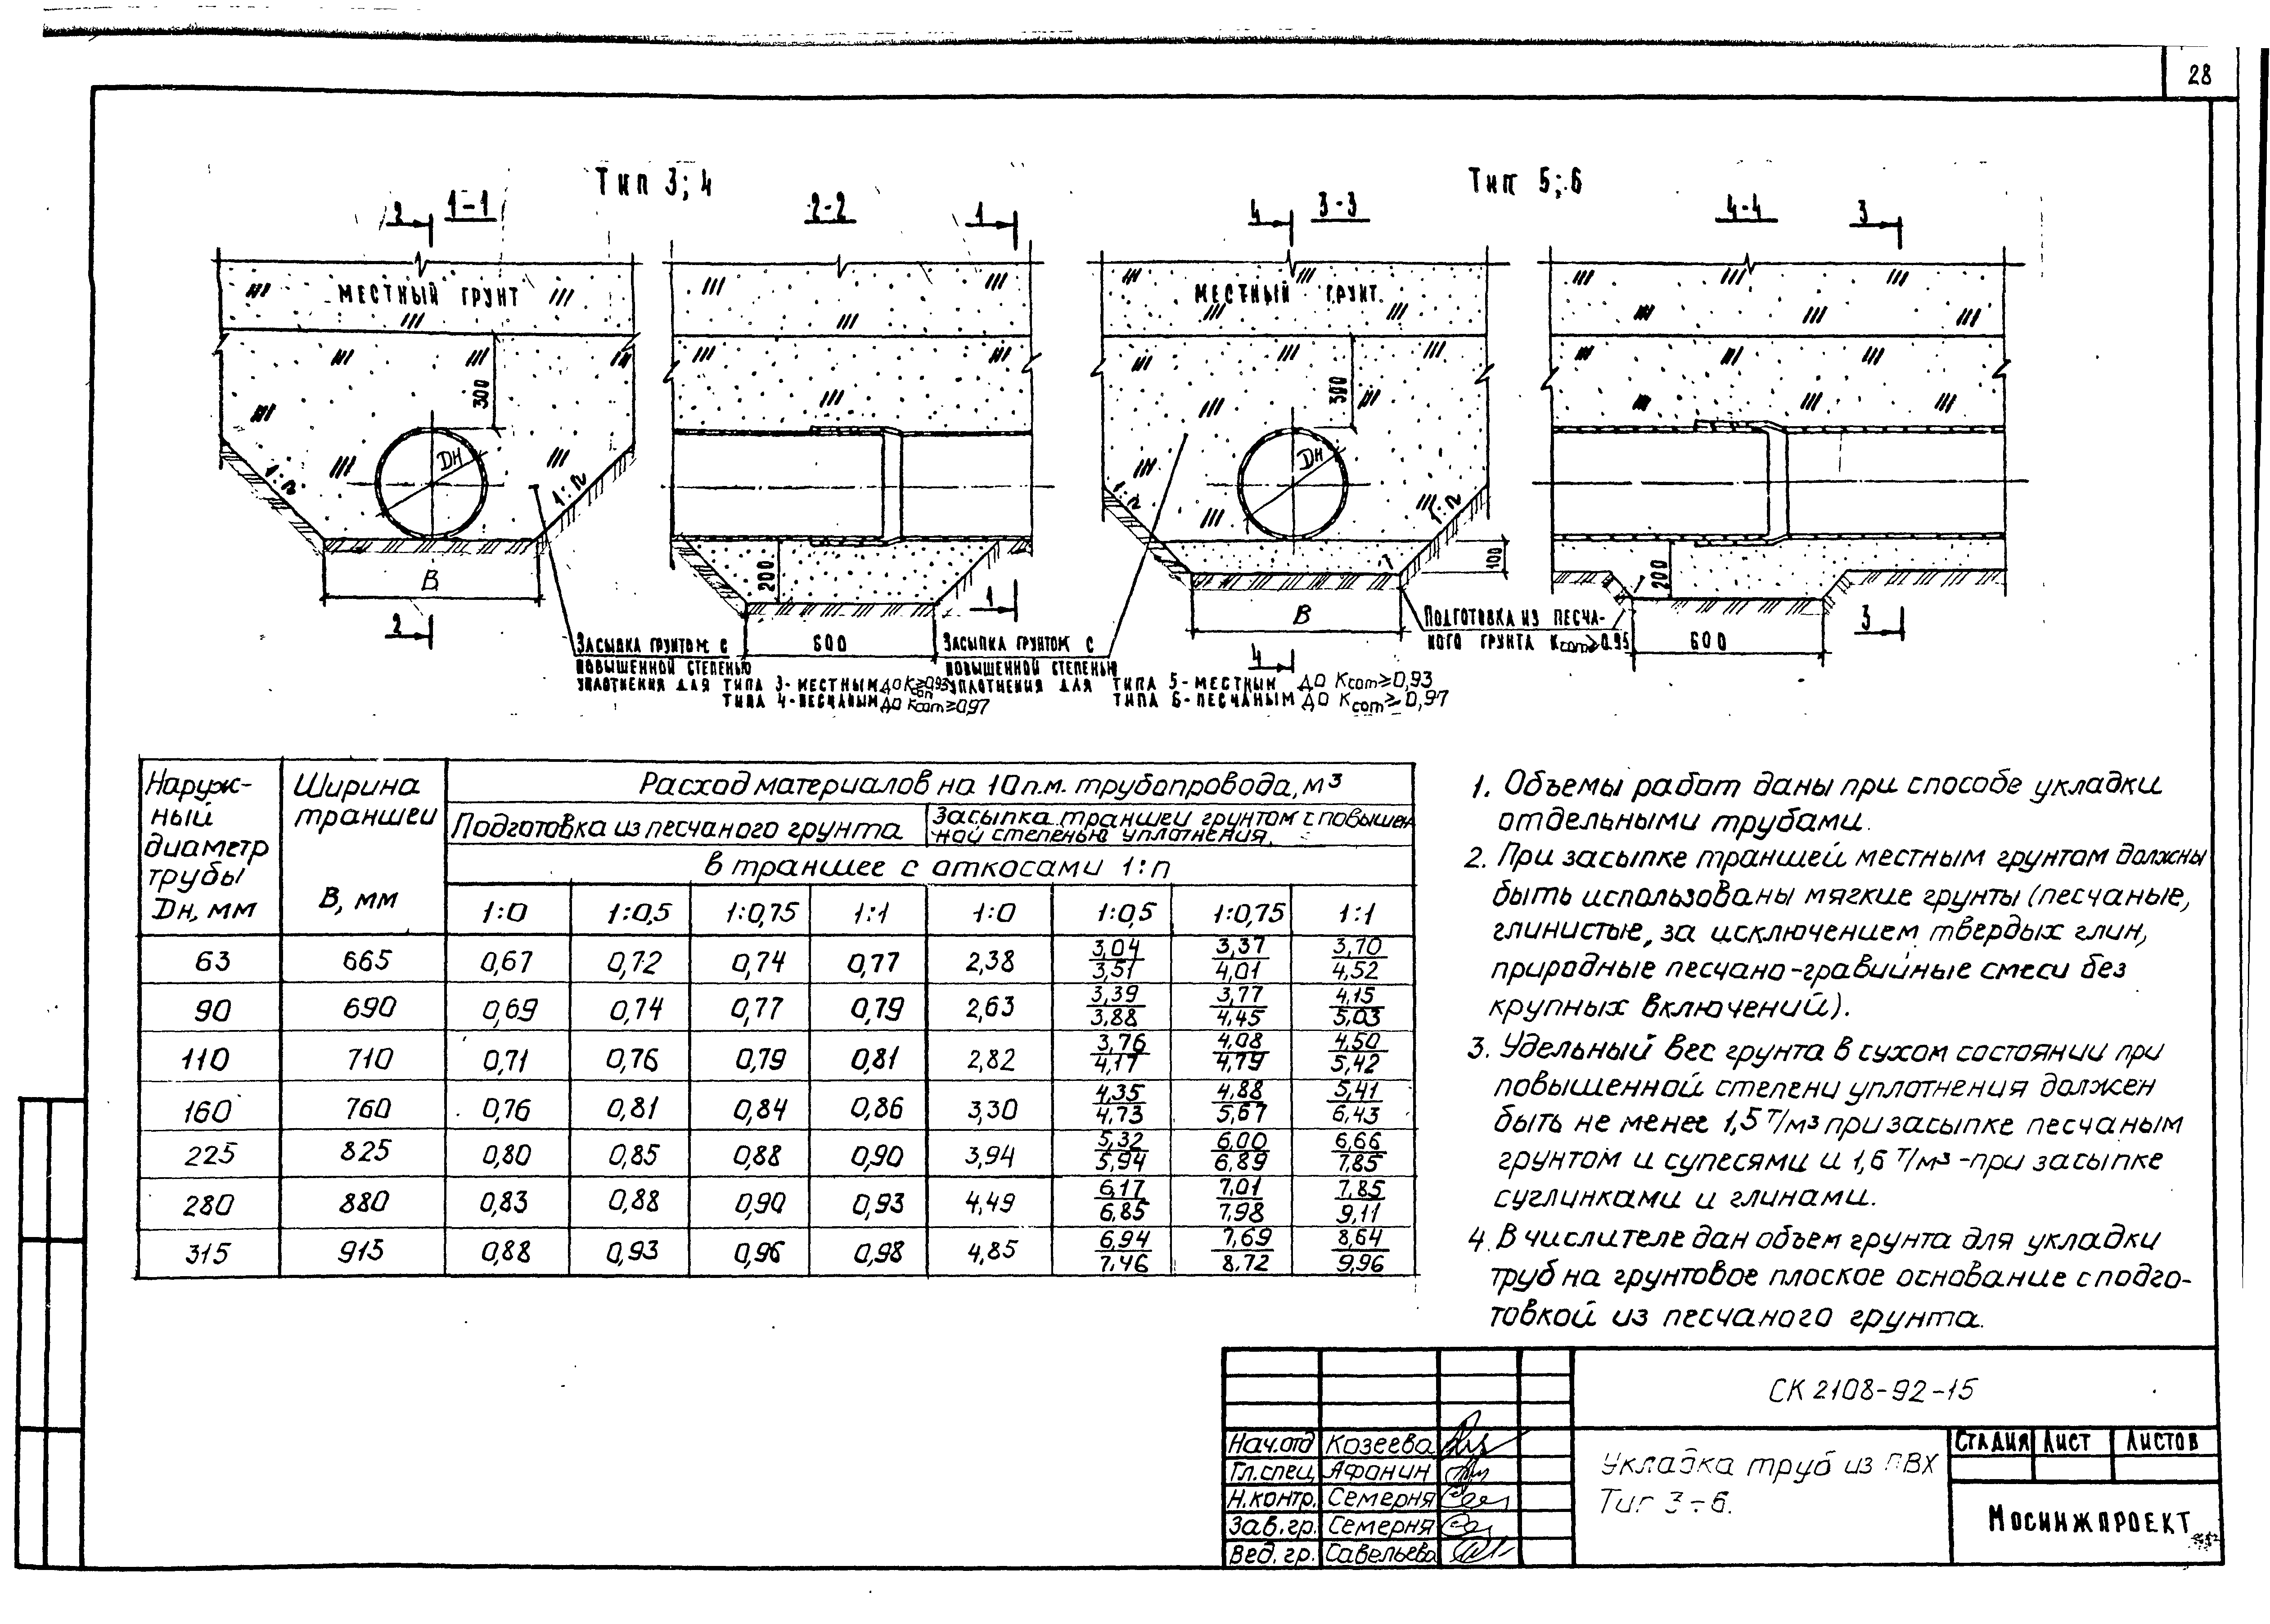 28
Тип 3; 4
Тип 5; 6
2
1-1
2-2
1
4
3-3
4-4
3
МЕСТНЫЙ ГРУНТ
МЕСТНЫЙ ГРУНТ
300
300
Dн
Dн
1:n
1:n
1:n
1:n
200
100
200
В
В
2
1
4
3
600
600
ЗАСЫПКА ГРУНТОМ С
ПОВЫШЕННОЙ СТЕПЕНЬЮ
УПЛОТНЕНИЯ ДЛЯ ТИПА 3-МЕСТНЫМ ДО Kcom≥0,93
ТИПА 4-ПЕСЧАНЫМ ДО Kcom≥0,97
ЗАСЫПКА ГРУНТОМ С
ПОВЫШЕННОЙ СТЕПЕНЬЮ
УПЛОТНЕНИЯ ДЛЯ ТИПА 5-МЕСТНЫМ ДО Kcom≥0,93
ТИПА 6-ПЕСЧАНЫМ ДО Kcom≥0,97
ПОДГОТОВКА ИЗ ПЕСЧА-
НОГО ГРУНТА Kcom≥0.95
Наруж-
ный
диаметр
трубы
Dн, мм
Ширина
траншеи
В, мм
Расход материалов на 10 п.м. трубопровода, м³
Подготовка из песчаного грунта
Засыпка траншеи грунтом с повышен
ной степенью уплотнения.
в траншее с откосами 1:n
1:0 1:0,5 1:0,75 1:1 1:0 1:0,5 1:0,75 1:1
63 665 0,67 0,72 0,74 0,77 2,38 3,04/3,51 3,37/4,01 3,70/4,52
90 690 0,69 0,74 0,77 0,79 2,63 3,39/3,88 3,77/4,45 4,15/5,03
110 710 0,71 0,76 0,79 0,81 2,82 3,76/4,17 4,08/4,79 4,50/5,42
160 760 0,76 0,81 0,84 0,86 3,30 4,35/4,73 4,88/5,67 5,41/6,43
225 825 0,80 0,85 0,88 0,90 3,94 5,32/5,94 6,00/6,89 6,66/7,85
280 880 0,83 0,88 0,90 0,93 4,49 6,17/6,85 7,01/7,98 7,85/9,11
315 915 0,88 0,93 0,96 0,98 4,85 6,94/7,46 7,69/8,72 8,64/9,96
1. Объемы работ даны при способе укладки
отдельными трубами.
2. При засыпке траншей местным грунтом должны
быть использованы мягкие грунты (песчаные,
глинистые, за исключением твердых глин,
природные песчано-гравийные смеси без
крупных включений).
3. Удельный вес грунта в сухом состоянии при
повышенной степени уплотнения должен
быть не менее 1,5 т/м³ при засыпке песчаным
грунтом и супесями и 1,6 т/м³ -при засыпке
суглинками и глинами.
4. В числителе дан объем грунта для укладки
труб на грунтовое плоское основание с подго-
товкой из песчаного грунта.
СК 2108-92-15
Нач.отд Козеева
Гл.спец. Афонин
Н.контр. Семерня
Зав.гр. Семерня
Вед. гр. Савельева
Укладка труб из ПВХ
Тип 3÷6.
СТАДИЯ ЛИСТ ЛИСТОВ
МОСИНЖПРОЕКТ